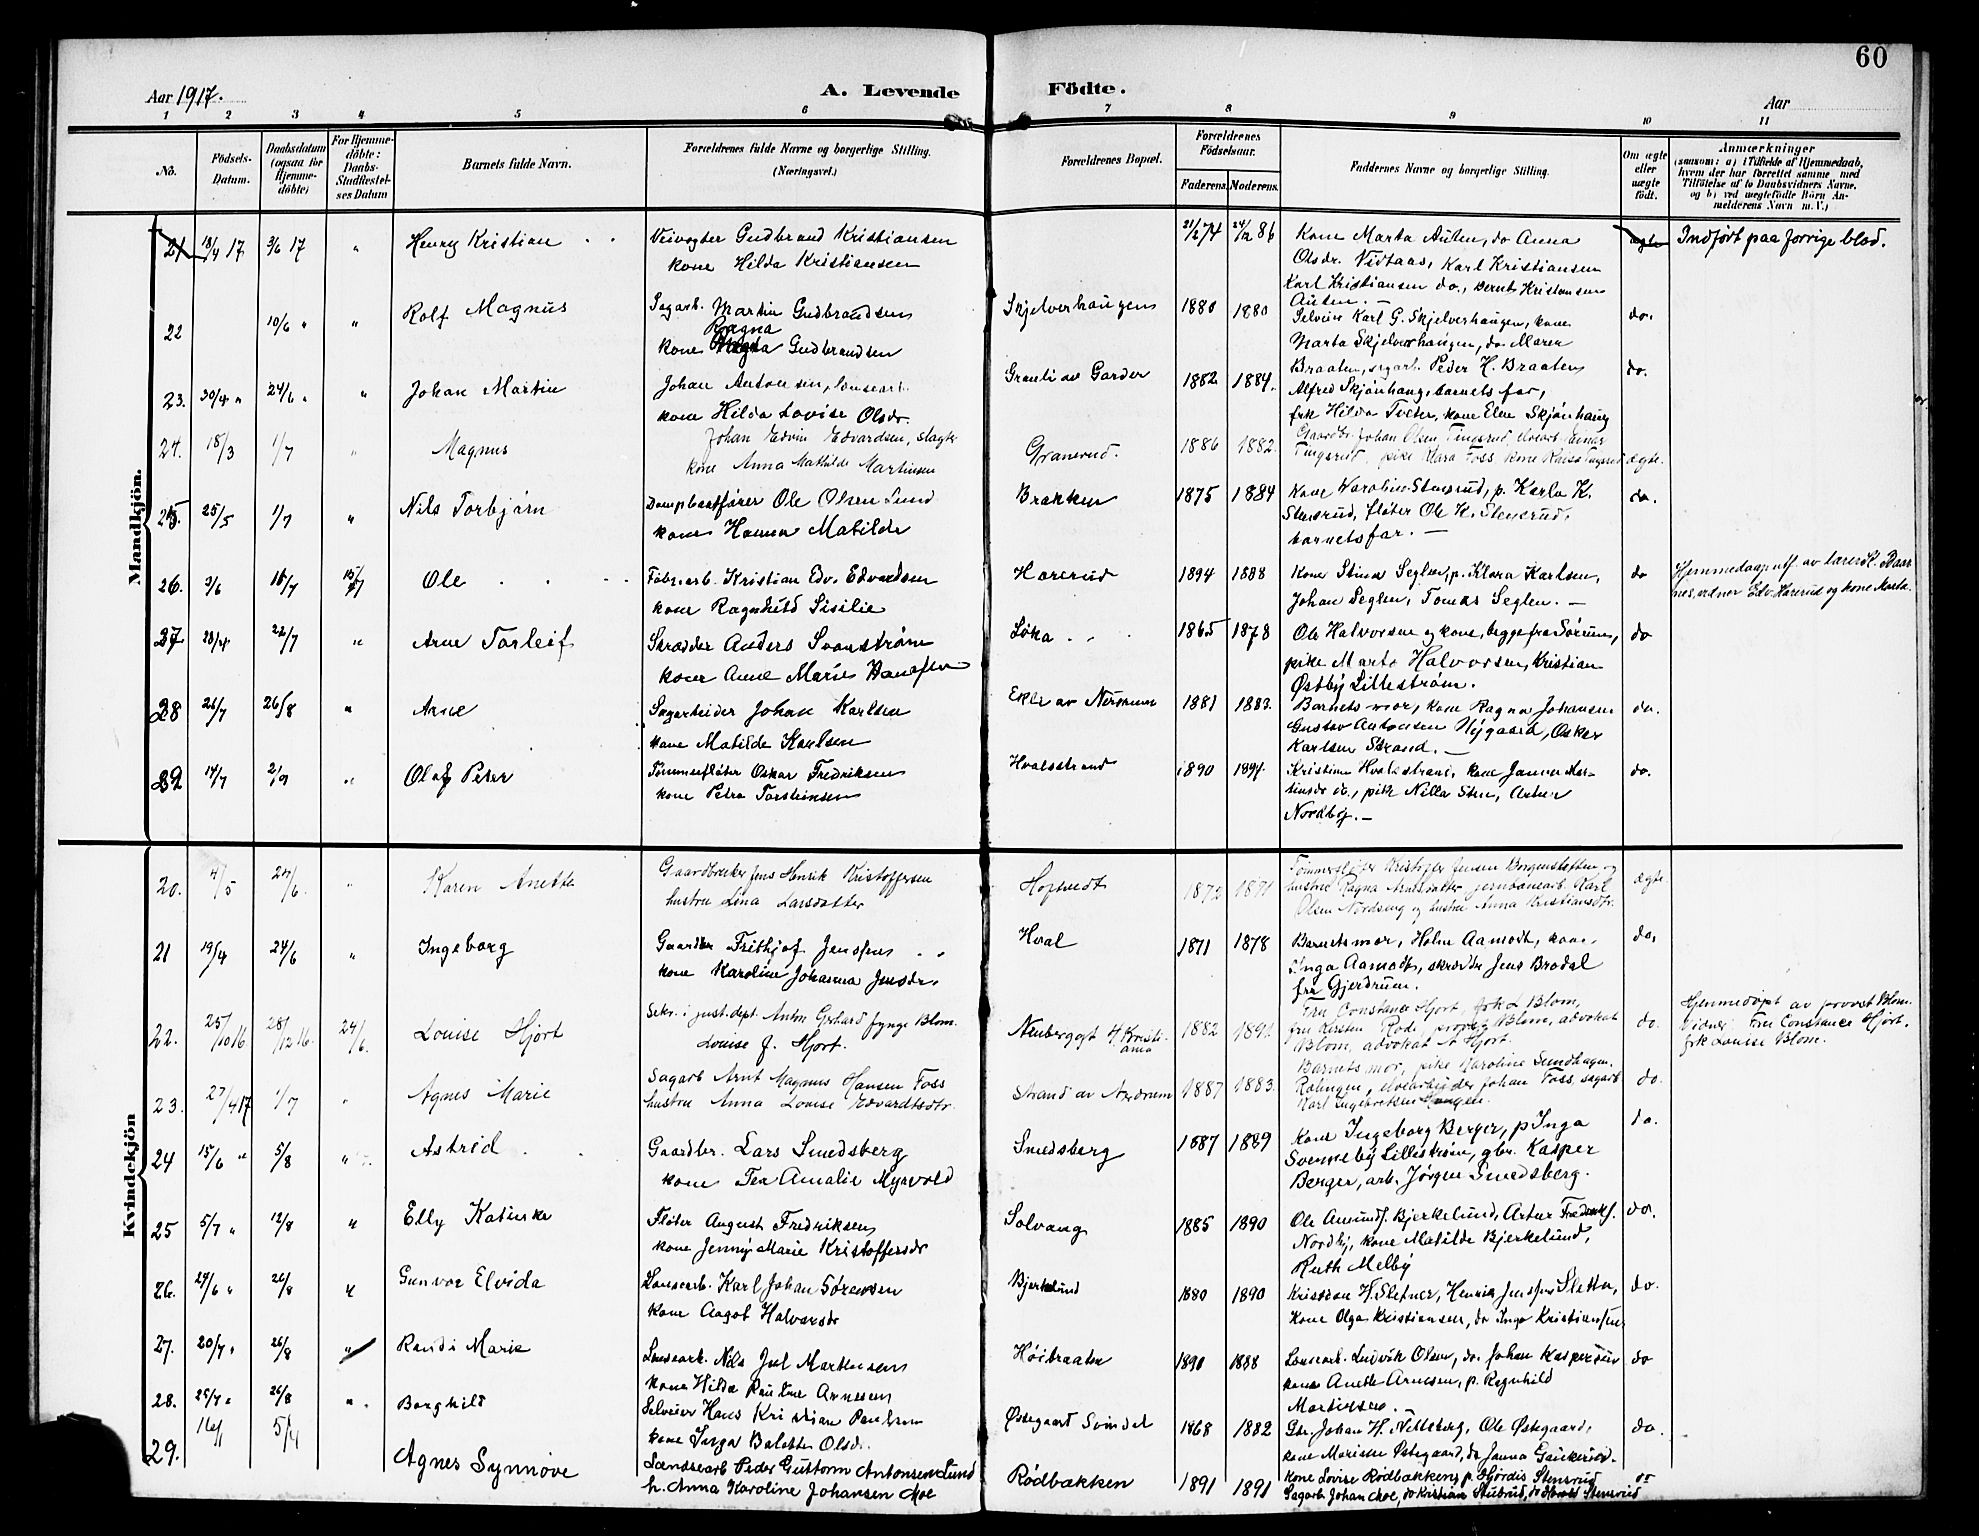 60
Aar 1917.
A. Levende Födte.
Aar
1 2 3 4 5 6 7 8 9 10 11
No.
Födsels-Datum.
Daabsdatum (ogsaa for Hjemme-döbte)
For Hjemme-döbte: Daabs-Stadfæstel-ses Datum
Barnets fulde Navn.
Forældrenes fulde Navne og borgerlige Stilling.
(Næringsvei.)
Forældrenes Bopæl.
Forældrenes Födselsaar.
Faderens. Moderens.
Faddernes Navne og borgerlige Stilling.
Om ægte eller uægte födt.
Anmærkninger
(saasom: a) i Tilfælde af Hjemmedaab,
hvem der har forrettet samme, med
Tilföielse af to Daabsvidners Navne,
og b) ved uægtefödte Börn An-
melderens Navn m. V.)
Mandkjön.
21 18/4 17 3/6 17 " Henry Kristian Veivogter Gudbrand Kristiansen 21/2 74 24/12 86 Kone Marta Auten, do Anna ægte Indført paa forrige blad.
kone Hilda Kristiansen Olsdr. Vidtaas, Karl Kristiansen
Karl Kristiansen do., Bernt Kristiansen
Auten. —
22 10/6 " " Rolf Magnus Sagarb. Martin Gudbrandsen Skjelverhaugen 1880 1880 Selveier Karl G. Skjelverhaugen, kone do.
Ragna
kone Gudbrandsen Marta Skjelverhaugen, do Maren
Braaten, sagarb. Peder H. Braaten
23. 30/4 " 24/6 " " Johan Martin Johan Antonsen, Granli av Garder 1882 1884. Alfred Skjønhaug, barnets far, do.
kone Hilda Lovise Olsdr. frk Hilda Tveter, kone Elen Skjønhaug
24. 18/3 1/7 " Magnus Johan Edvin Edvardsen, slagter Granerud. 1886 1882. Gaardbr. Johan Olsen Tingsrud,
kone Anna Mathilde Martinsen Tingsrud, pike Klara Foss kone ægte.
25. 25/5 1/7 " Nils Torbjørn Dampbaatfører Ole Olsen Lund Brækken 1875 1884 Kone Karoline Stensrud, p. Karla K. do.
kone Hanna Matilde Stensrud, fløter Ole K. Stensrud,
barnets far. —
26. 3/6 15/7 15/7 Ole Kristian Edv. Edvardsen Harerud 1894 1888 Kone Stina Seglen, p. Klara Karlsen, do Hjemmedaap utf. av
kone Ragnhild Sisilie Johan Seglen, Tomas Seglen. — Edv. Harerud og kone Marta.
27 23/4 22/7 " Arne Torleif Skrædder Anders Svanstrøm Løka 1865 1878 Ole Halvorsen og kone, begge fra Sørum, do
kone Anne Marie Hansen pike Marta Halvorsen, Kristian
Østby Lillestrøm.
28 26/7 26/8 " Arne Sagarbeider Johan Karlsen Ekle av Nersnum 1881 1883. Barnets mor, kone Ragna Johansen do.
kone Matilde Karlsen Gustav Antonsen Nygaard, Oskar
Karlsen Strand. —
29 14/7 2/9 " Olaf Peter Tømmerfløter Oskar Fredriksen Hvalsstrand 1890 1894. Kristine Hvalsstrand, kone Janna Mar- do.
kone Petra Torsteinsen tinsdr do., pike Nilla Sten, Artur
Nordby. —
Kvindekjön
20. 4/5 24/6. " Karen Anette Gaardbruker Jens Henrik Kristoffersen Hoftvedt 1872 1871 Tømmerfløter Kristoffer Jensen Borgenstoften og ægte.
hustru Lina Larsdatter hustru Ragna Arnesdatter, jernbanearb. Karl
Olsen Nordseng og hustru Anna Kristiansdtr.
21 19/4 24/6 " Ingeborg Gaardbr Frithjof Jensen Hval 1871 1878 Barnets mor, Halm Aamodt, kone do.
kone Karoline Johanna Jensdr. Inga Aamodt, skrædder Jens Brodal
fra Gjerdrum.
22. 25/10 16 28/12 16. 24/6. Louise Hjort Sekr. i just. dept. Anton Gerhard Jynge Blom. Neubergsgt 4 Kristi- 1882 1891. Fru Constance Hjort, frk L Blom, do. Hjemmedøpt av provst Blom.
Louise f. Hjort. ania fru Kirsten Rode, provst Blom, advokat Vidner: Fru Constance Hjort.
Blom, advokat A Hjort. frk Louise Blom.
23. 27/4 17 1/7 " Agnes Marie Sagarb Arnt Magnus Hansen Foss Strand av Nerdrum 1887 1883. Barnets mor, pike Karoline Sundhagen. do.
hustru Anna Louise Edvardtsdtr. Rælingen, elvearbeider Johan Foss, sagarb
Karl Ingebretsen Haugen.
24 15/6 " 5/8 " Astrid Gaardbr. Lars Smedsberg Smedsberg 1887 1889 Kone Ingeborg Berger, p Inga do.
kone Tea Amalie Myrvold Svenneby Lillestrøm, gbr. Kasper
Berger, arb. Jørgen Smedsberg.
25 5/7 " 12/8 " Elly Katinka Fløter August Fredriksen, Solvang 1885 1890 Ole Amunds. Bjerkelund, Artur Fredriks. do.
kone Jenny Marie Kristoffersdr Nordby, kone Matilde Bjerkelund,
Ruth Melby
26. 24/6 " 26/8 " Gunvor Elvida Landsearb. Karl Johan Sørensen Bjerkelund 1880 1890 Kristian H. Sletner, Henrik Jensen Sletta, do.
kone Aagot Halvorsdr kone Olga Kristiansen, do Inga Kristiansen
27. 20/7 " 26/8 " Randi Marie Landsearb. Nils Jul Martinsen Høibraaten 1890 1888 Landsearb. Ludvik Olsen, do. Johan Kaspersen do
kone Hilda Pauline Arnesen kone Anette Arnesen, p. Ragnhild
Martinsen.
28. 25/7 " 26/8 " Borghild Selveier Hans Kristian Paulsen Østegaard Svindal 1868 1882 Gbr. Johan H. Nitteberg, Ole Østegaard, do.
kone Inga Balette Olsdr. kone Marisen Østegaard, do Janna Gaukerud.
29. 16/11 5/4 Agnes Synnøve Landsearb Peder Guttorm Antonsen Lund Rødbakken 1891 1891 Kone Lovise Rødbakken, p. Hjørdis Stensrud do
h. Anna Karoline Johansen Moe Sagarb Johan Moe, do Kristian Stubrud, do Harald Stensrud